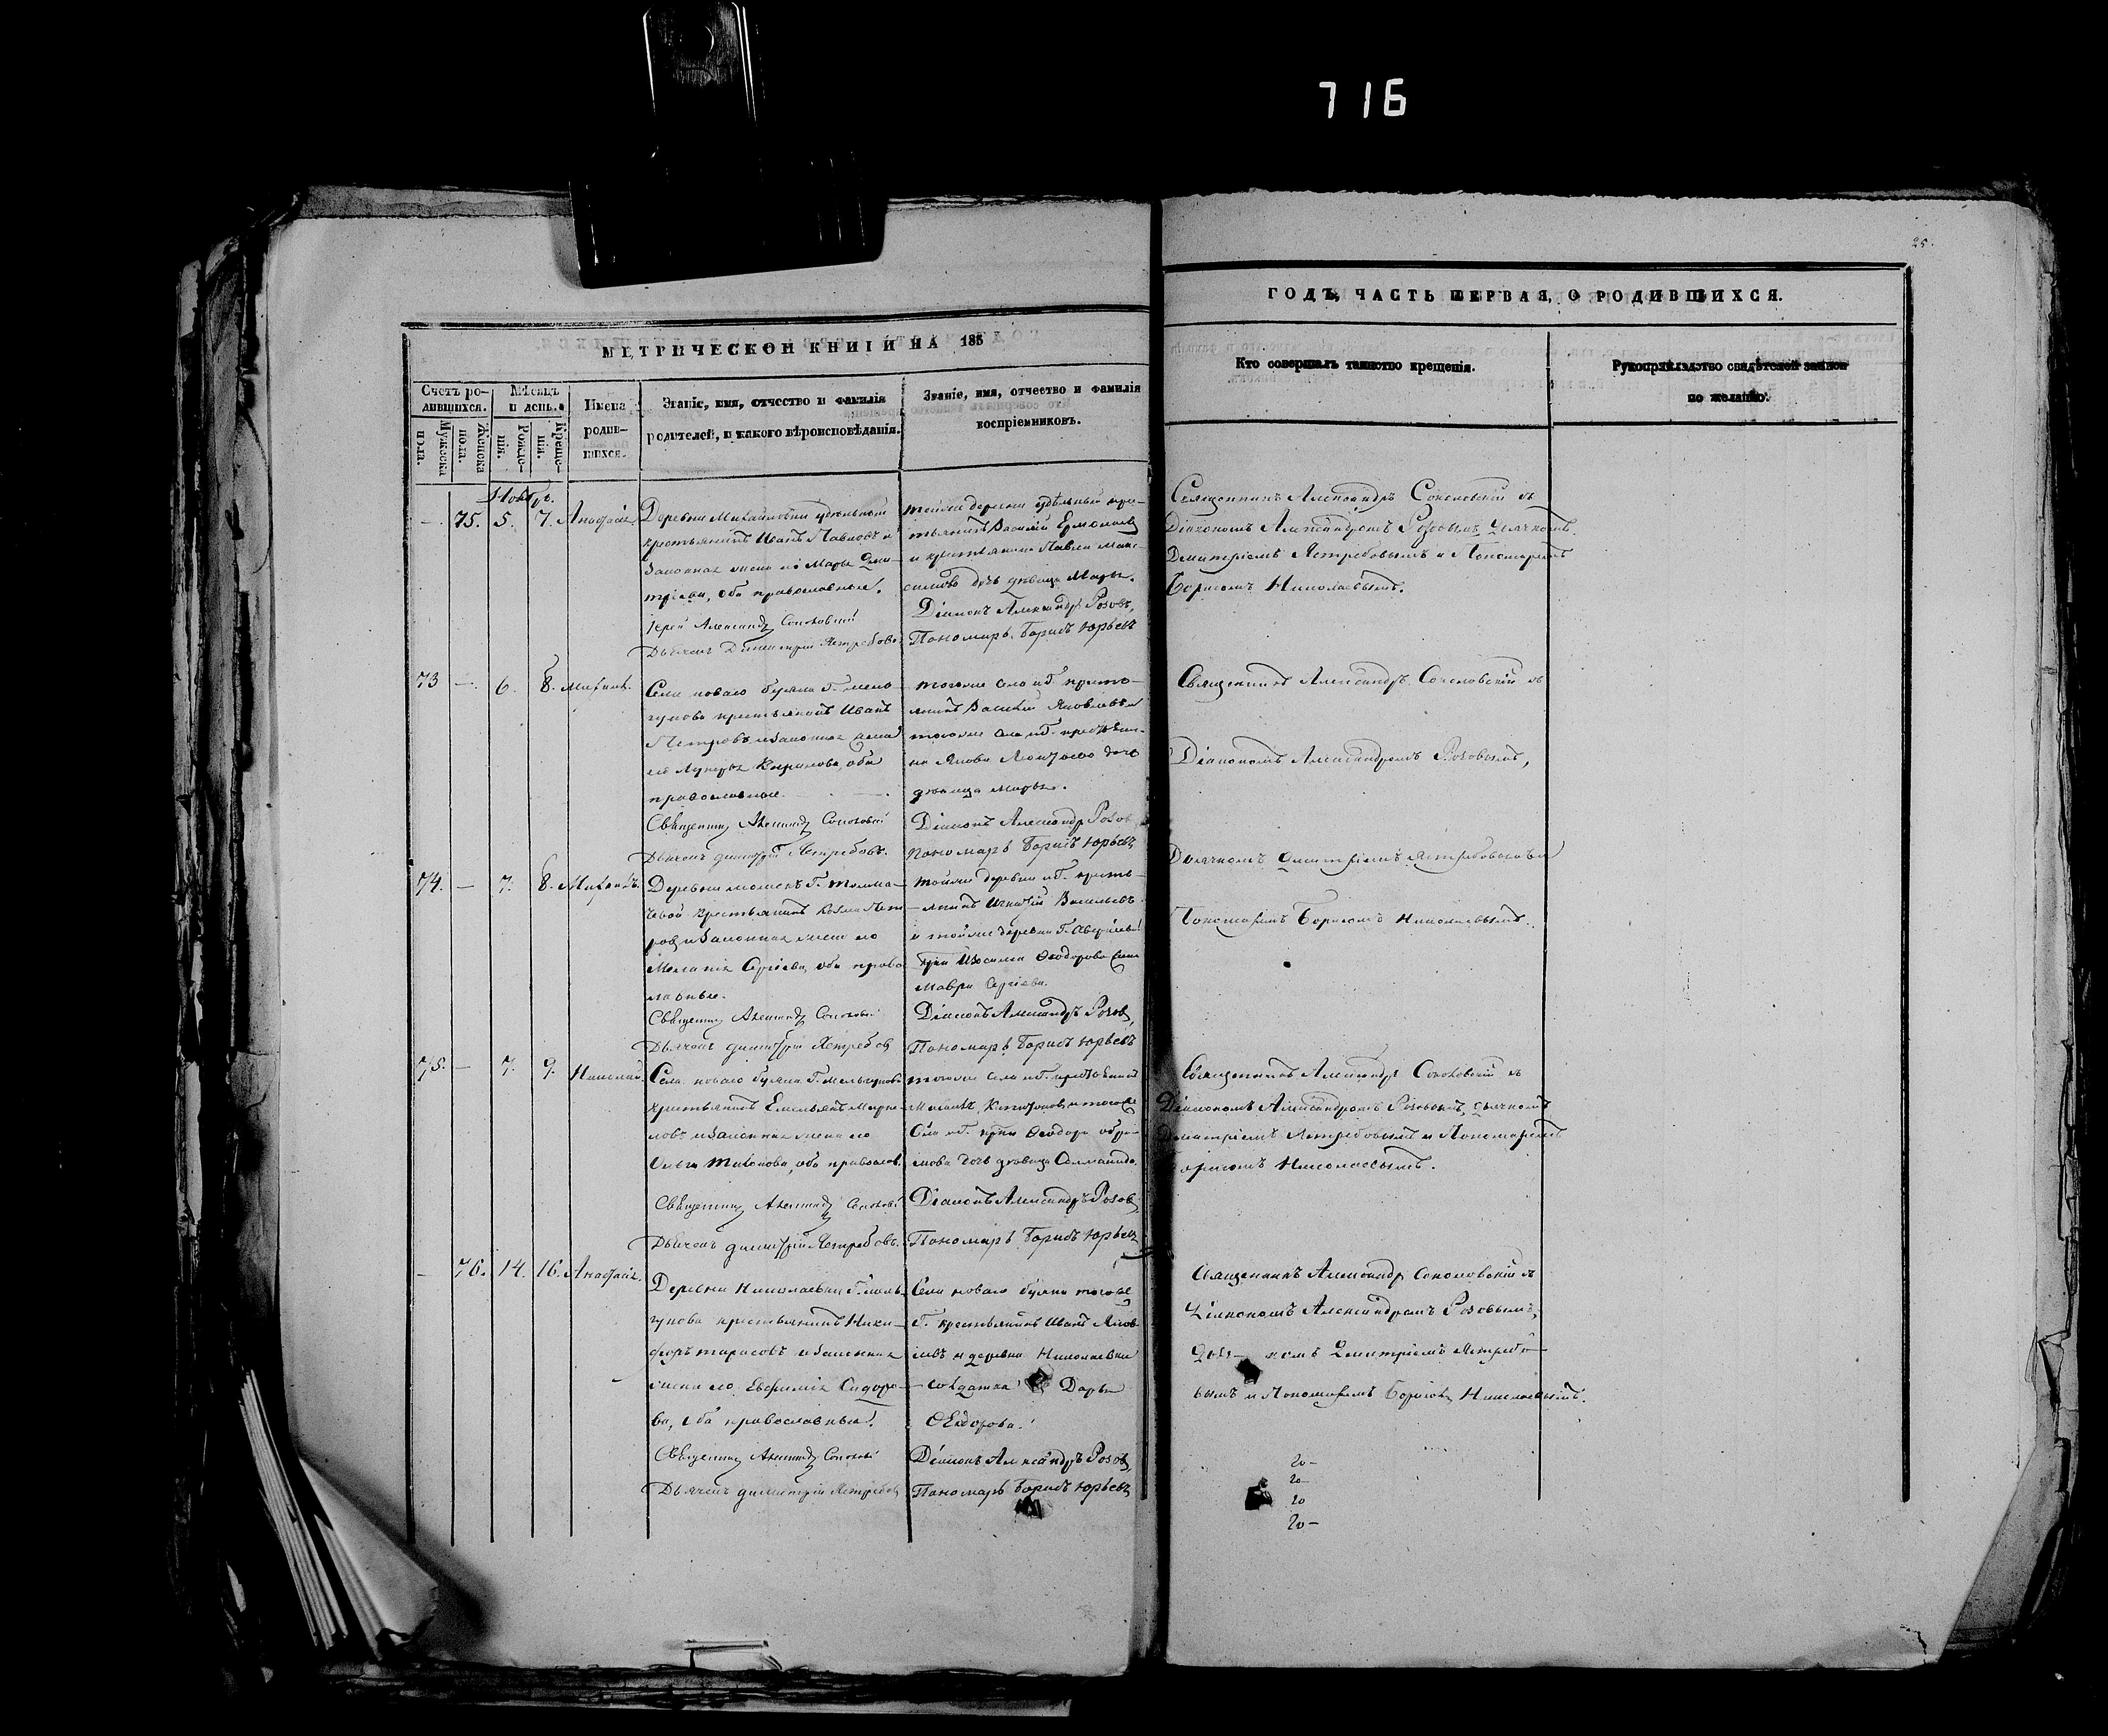 716
25.
МЕТРИЧЕСКОЙ КНИГИ НА 185
ГОДЪ, ЧАСТЬ ПЕРВАЯ, О РОДИВШИХСЯ.
Счетъ ро-
дившихся.
Мужеска
пола.
Женска
пола.
Мѣсяцъ
и день.
Рожде-
нія.
Креще-
нія.
Имена
родив-
шихся.
Званіе, имя, отчество и фамилія
родителей, и какого вѣроисповѣданія.
Званіе, имя, отчество и фамилія
воспріемниковъ.
Кто совершалъ таинство крещенія.
Рукоприкладство свидѣтелей записи
по желанію.
— 75. 5. 7.
Деревни Михайловки удѣльный
крестьянинъ Иванъ Павловъ и
законная жена его Марья Дми-
тріева, оба православные.
Іерей Александръ Соколовскій
Дьячекъ Димитрій Ястребовъ
тойже деревни удѣльный крес-
тьянинъ Василій Ермолаевъ
и крестьянина Павла Мак-
симова дочь дѣвица Марья.
Діаконъ Александръ Розовъ,
Пономарь Борисъ Юрьевъ
Священникъ Александръ Соколовскій съ
Діакономъ Александромъ Розовымъ, Дьячкомъ
Димитріемъ Ястребовымъ и Пономаремъ
Борисомъ Николаевымъ.
73 — 6. 8. Михаилъ.
Села новаго Буяна Г.
крестьянинъ Иванъ
Петровъ и законная жена
его Кирилова, оба
православные.
Священникъ Александръ Соколовскій
Дьячекъ Димитрій Ястребовъ.
тогоже села и Г. кресть-
янинъ Василій Яковлевъ и
тогоже села и Г. крестьяни-
на Якова дочь
дѣвица Марья.
Діаконъ Александръ Розовъ
Пономарь Борисъ Юрьевъ
Священникъ Александръ Соколовскій съ
Діакономъ Александромъ Розовымъ,
Дьячкомъ Димитріемъ Ястребовымъ и
Пономаремъ Борисомъ Николаевымъ.
74. — 7. 8. Михаилъ.
Деревни Г.
крестьянинъ Козма Пет-
ровъ и законная жена его
Меланія Сергіева, оба право-
славные.
Священникъ Александръ Соколовскій
Дьячекъ Димитрій Ястребовъ
тойже деревни и Г. кресть-
янинъ Игнатій Васильевъ
и тойже деревни Г.
Ѳеодорова жена
Мавра Сергіева.
Діаконъ Александръ Розовъ,
Пономарь Борисъ Юрьевъ
75. — 7. 9. Николай.
Села новаго Буяна Г. Мельгунова
крестьянинъ Емельянъ
и законная жена его
Ольга Тихонова, оба православ.
Священникъ Александръ Соколовскій
Дьячекъ Димитрій Ястребовъ.
тогоже села и Г. крестьянинъ
и тогоже
села и Г. Ѳеодора
дочь дѣвица
Діаконъ Александръ Розовъ,
Пономарь Борисъ Юрьевъ
Священникъ Александръ Соколовскій съ
Діакономъ Александромъ Розовымъ, Дьячкомъ
Димитріемъ Ястребовымъ и Пономаремъ
Борисомъ Николаевымъ.
— 76. 14. 16.
Деревни Николаевки Г. Мель-
гунова крестьянинъ Ники-
форъ Тарасовъ и законная
жена его Евфимія Сидоро-
ва, оба православные.
Священникъ Александръ Соколовскій
Дьячекъ Димитрій Ястребовъ
Села новаго Буяна тогоже
Г. крестьянинъ Иванъ Яков-
левъ и деревни Николаевки
солдатка Дарья
Ѳеодорова.
Діаконъ Александръ Розовъ,
Пономарь Борисъ Юрьевъ
Священникъ Александръ Соколовскій съ
Діакономъ Александромъ Розовымъ,
Димитріемъ Ястребо-
вымъ и Пономаремъ Борисомъ Николаевымъ.
20 —
20 —
20
20 —